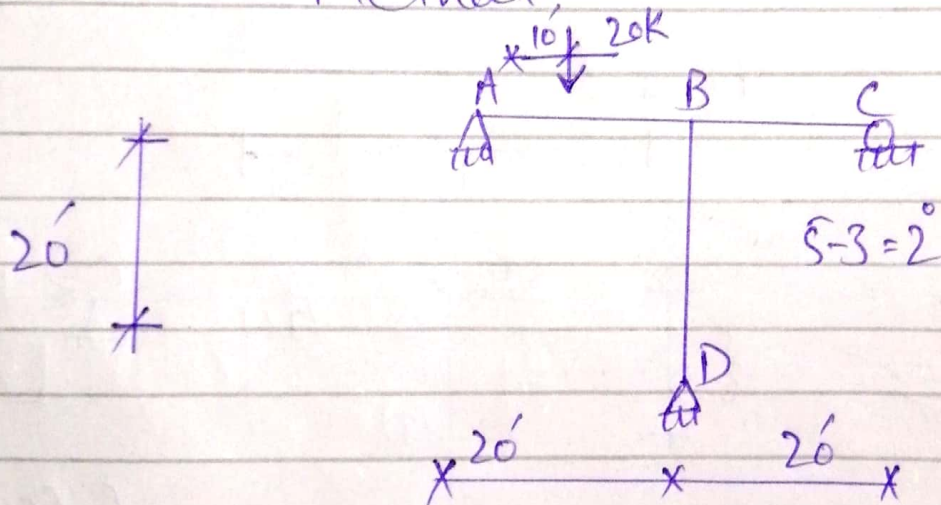 10' 20K
A B C
20'
5-3=2°
D
20' 20'